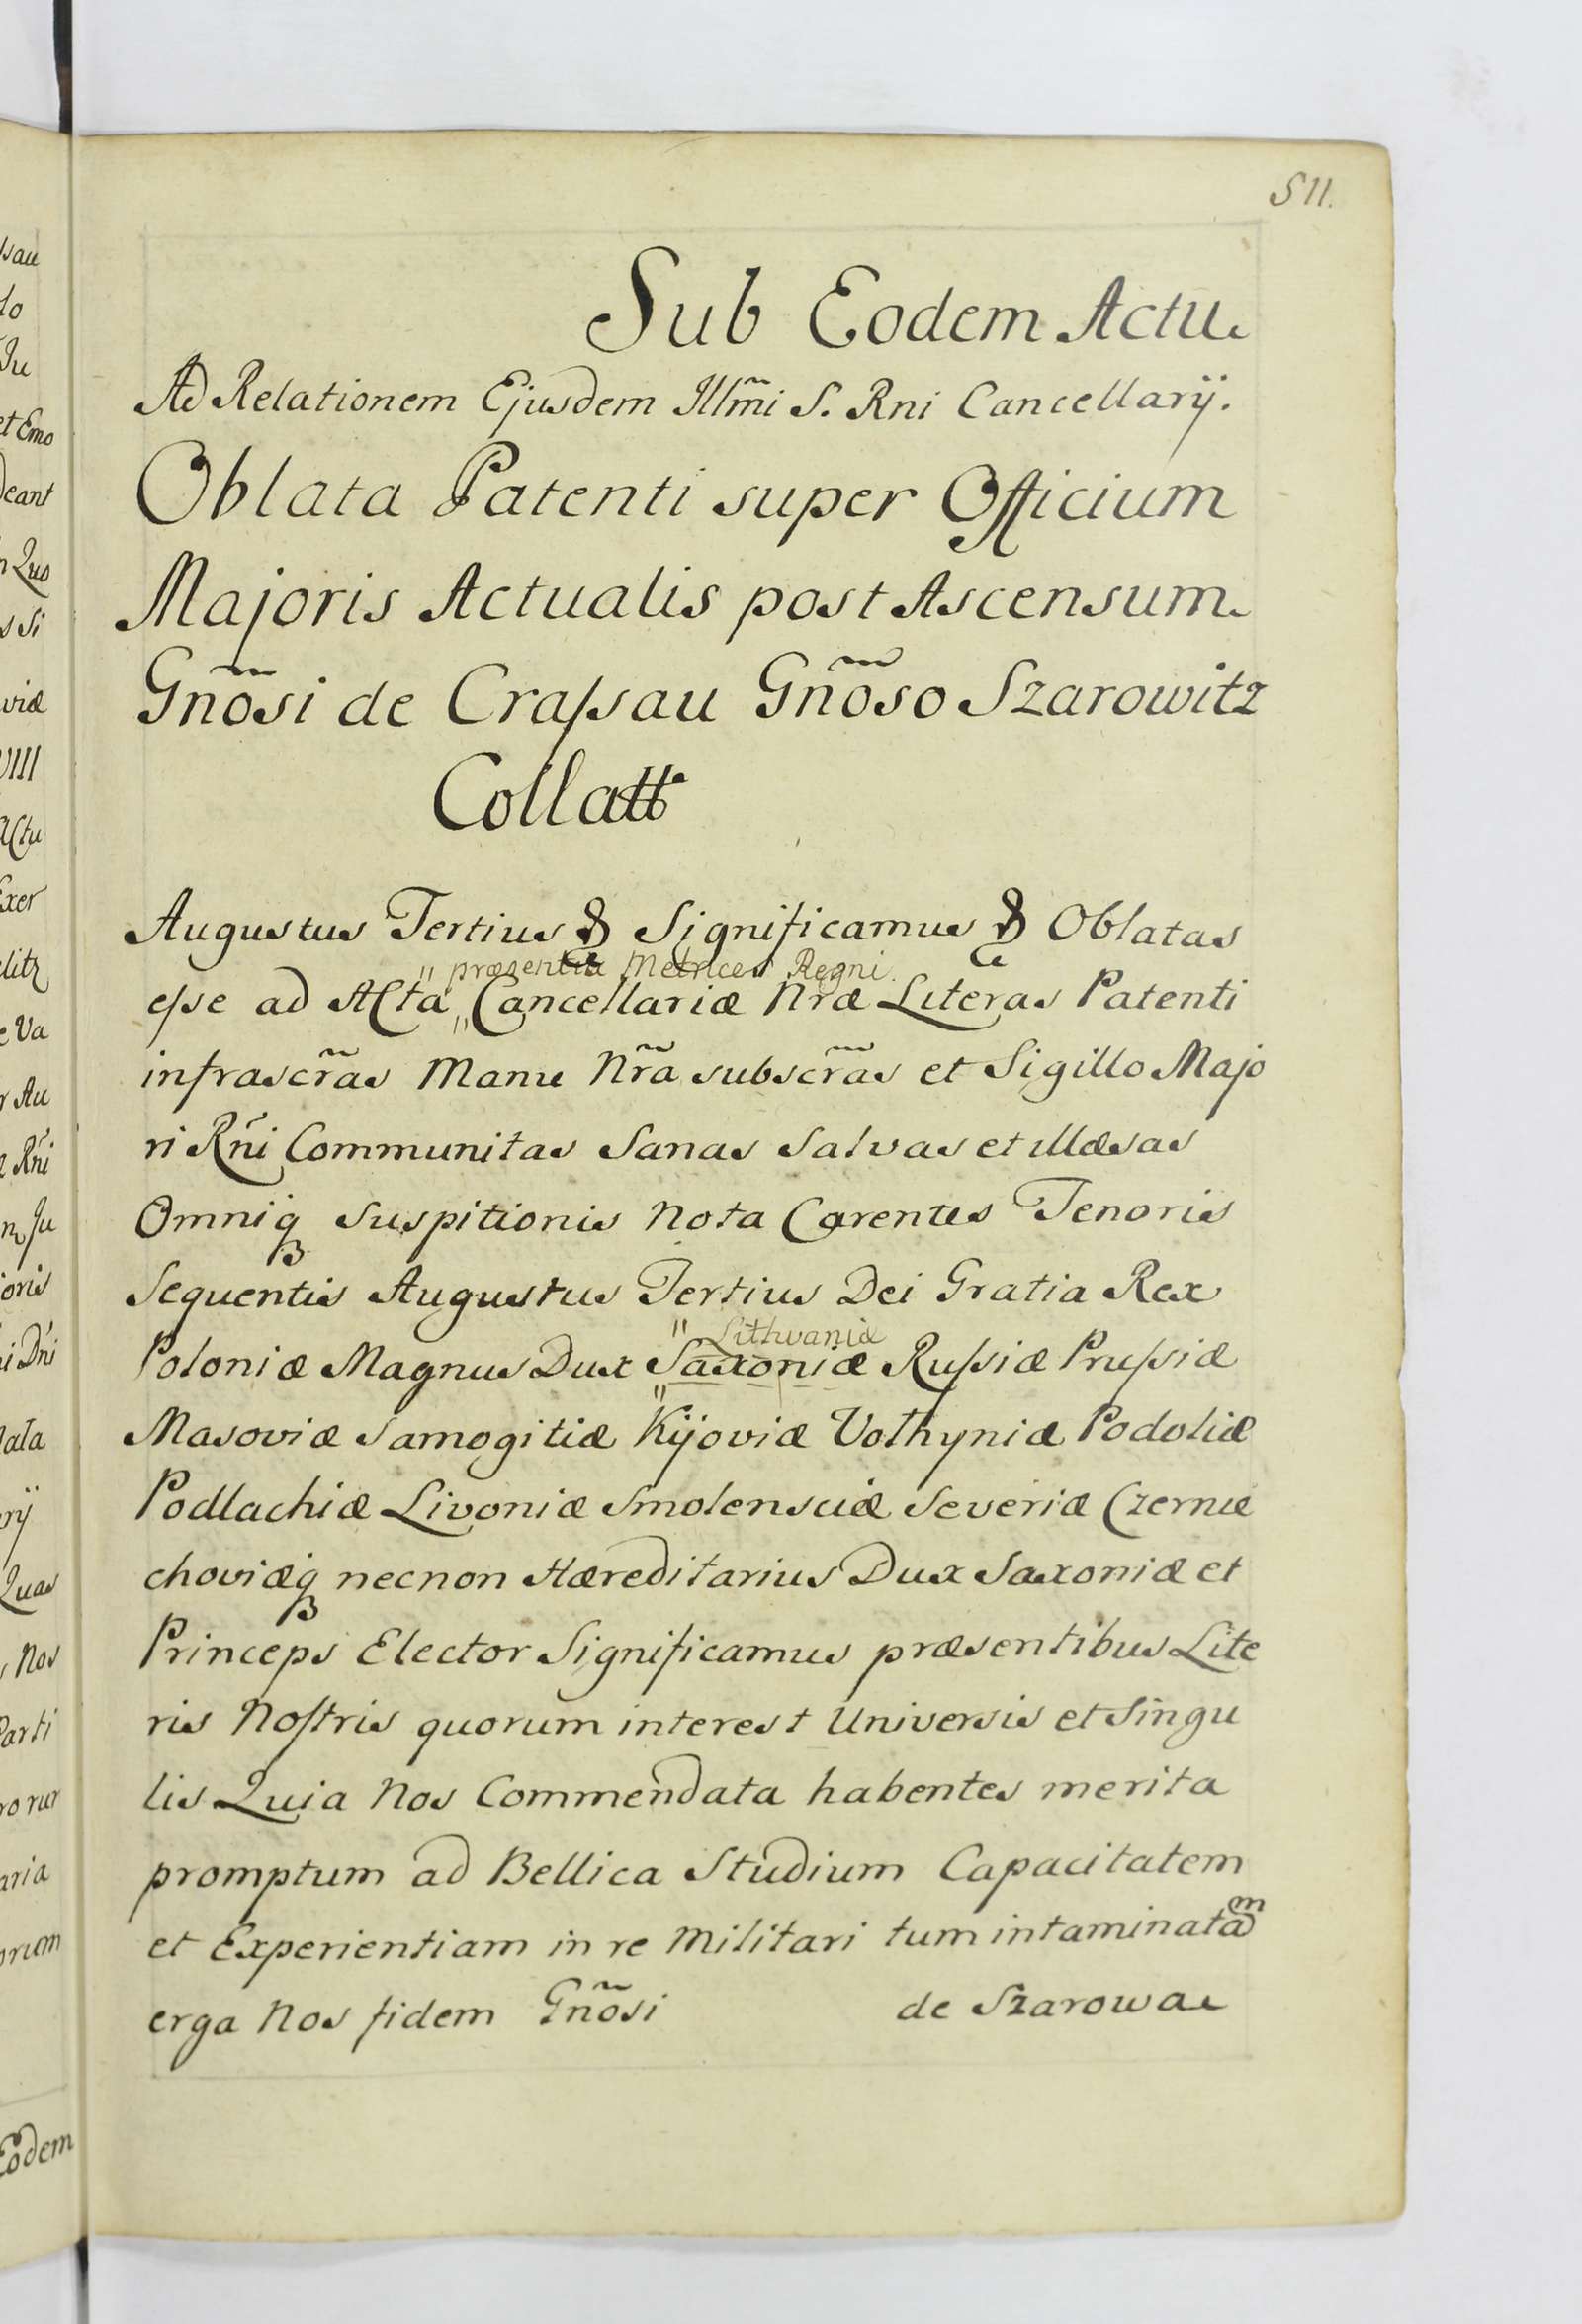 511.
Sub Eodem Actu
Ad Relationem Ejusdem Illm̃i S. Rni Cancellarÿ.
Oblata Patenti super Officium
Majoris Actualis post Ascensum
Gño̅si de Craſsau Gño̅so Szarowitz
Collatt
Augustus Tertius & Significamus & Oblatas
præsentia Metrices Regni
eſse ad Acta „ Cancellariæ Nræ Literas Patenti
infrascr̃as Manu Nr̃a subscr̃as et Sigillo Majo
ri Rñi Communitas Sanas Salvas et illæsas
Omniq̨ suspitionis nota Carentes Tenoris
Sequentis Augustus Tertius Dei Gratia Rex
" Lithvaniæ
Poloniæ Magnus Dux Saxoniæ Ruſsiæ Pruſsiæ
Masoviæ Samogitiæ Kijoviæ Volhyniæ Podoliæ
Podlachiæ Livoniæ Smolensciæ Severiæ Czernie
choviæq̨ necnon Hæreditarius Dux Saxoniæ et
Princeps Elector Significamus præsentibus Lite
ris Noſtris quorum interest Universis et Singu
lis Quia Nos Commendata habentes merita
promptum ad Bellica Studium Capacitatem
et Experientiam in re Militari tum intaminatam
erga Nos fidem Gño̅si de Szarowa
sau
lo
Ju
et Emo
deant
n Quo
s Si
viæ
VIII
Actu
Exer
litz
e Va
r Au
Rñi
n Ju
ioris
i Dñi
lata
rÿ
Quas
, Nos
Parti
ro rur
aria
orum
Eodem